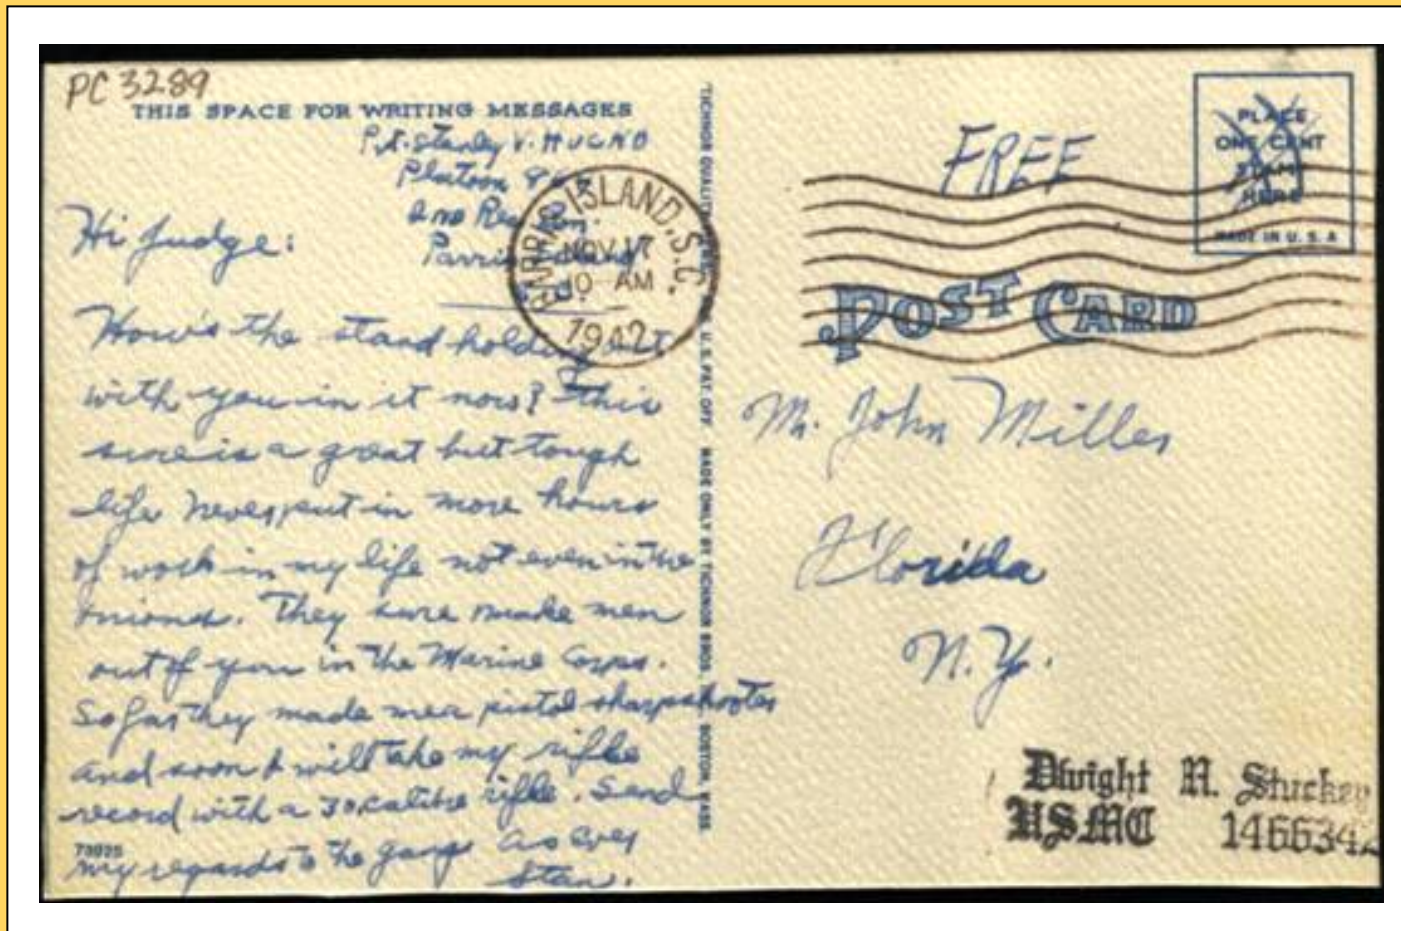 PC 3289
THIS SPACE FOR WRITING MESSAGES
Pvt. Stanley V.
Platoon
2nd Rec. Bn.
Parris Island
Hi Judge:
How's the stand holding out
with you in it now? This
sure is a great but tough
life never put in more hours
of work in my life not even in the
They sure make men
out of you in the Marine Corps.
So far they made me a pistol sharpshooter
and soon I will take my rifle
record with a 30. calibre rifle. Send
my regards to the gang As ever
Stan.
73925
PARRIS ISLAND, S.C.
NOV 17
10 AM
1942
TICHNOR QUALITY U.S. PAT. OFF. MADE ONLY BY TICHNOR BROS. BOSTON, MASS.
FREE
PLACE
ONE CENT
STAMP
HERE
MADE IN U.S.A
POST CARD
Mr. John Miller
Florida
N.Y.
Dwight R. Stuckey
USMC 1466342